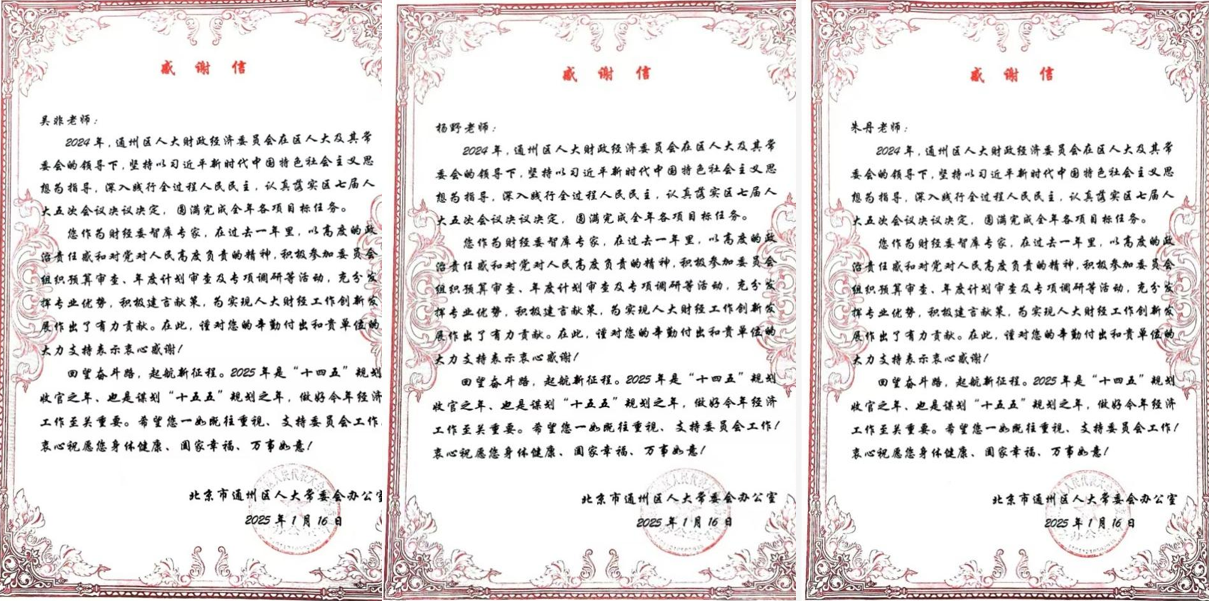 感谢信
吴非老师：
2024年，通州区人大财政经济委员会在区人大及其常
委会的领导下，坚持以习近平新时代中国特色社会主义思
想为指导，深入践行全过程人民民主，认真落实区七届人
大五次会议决议决定，圆满完成全年各项目标任务。
您作为财经委智库专家，在过去一年里，以高度的政
治责任感和对党对人民高度负责的精神，积极参加委员会
组织预算审查、年度计划审查及专项调研等活动，充分发
挥专业优势，积极建言献策，为实现人大财经工作创新发
展作出了有力贡献。在此，谨对您的辛勤付出和贵单位的
大力支持表示衷心感谢！
回望奋斗路，起航新征程。2025年是“十四五”规划
收官之年、也是谋划“十五五”规划之年，做好今年经济
工作至关重要。希望您一如既往重视、支持委员会工作
衷心祝愿您身体健康、阖家幸福、万事如意！
北京市通州区人大常委会办公室
2025年1月16日
感谢信
杨野老师：
2024年，通州区人大财政经济委员会在区人大及其常
委会的领导下，坚持以习近平新时代中国特色社会主义思
想为指导，深入践行全过程人民民主，认真落实区七届人
大五次会议决议决定，圆满完成全年各项目标任务。
您作为财经委智库专家，在过去一年里，以高度的政
治责任感和对党对人民高度负责的精神，积极参加委员会
组织预算审查、年度计划审查及专项调研等活动，充分发
挥专业优势，积极建言献策，为实现人大财经工作创新发
展作出了有力贡献。在此，谨对您的辛勤付出和贵单位的
大力支持表示衷心感谢！
回望奋斗路，起航新征程。2025年是“十四五”规划
收官之年、也是谋划“十五五”规划之年，做好今年经济
工作至关重要。希望您一如既往重视、支持委员会工作！
衷心祝愿您身体健康、阖家幸福、万事如意！
北京市通州区人大常委会办公室
2025年1月16日
感谢信
朱丹老师：
2024年，通州区人大财政经济委员会在区人大及其常
委会的领导下，坚持以习近平新时代中国特色社会主义思
想为指导，深入践行全过程人民民主，认真落实区七届人
大五次会议决议决定，圆满完成全年各项目标任务。
您作为财经委智库专家，在过去一年里，以高度的政
治责任感和对党对人民高度负责的精神，积极参加委员会
组织预算审查、年度计划审查及专项调研等活动，充分发
挥专业优势，积极建言献策，为实现人大财经工作创新发
展作出了有力贡献。在此，谨对您的辛勤付出和贵单位的
大力支持表示衷心感谢！
回望奋斗路，起航新征程。2025年是“十四五”规划
收官之年、也是谋划“十五五”规划之年，做好今年经济
工作至关重要。希望您一如既往重视、支持委员会工作！
衷心祝愿您身体健康、阖家幸福、万事如意！
北京市通州区人大常委会办公室
2025年1月16日